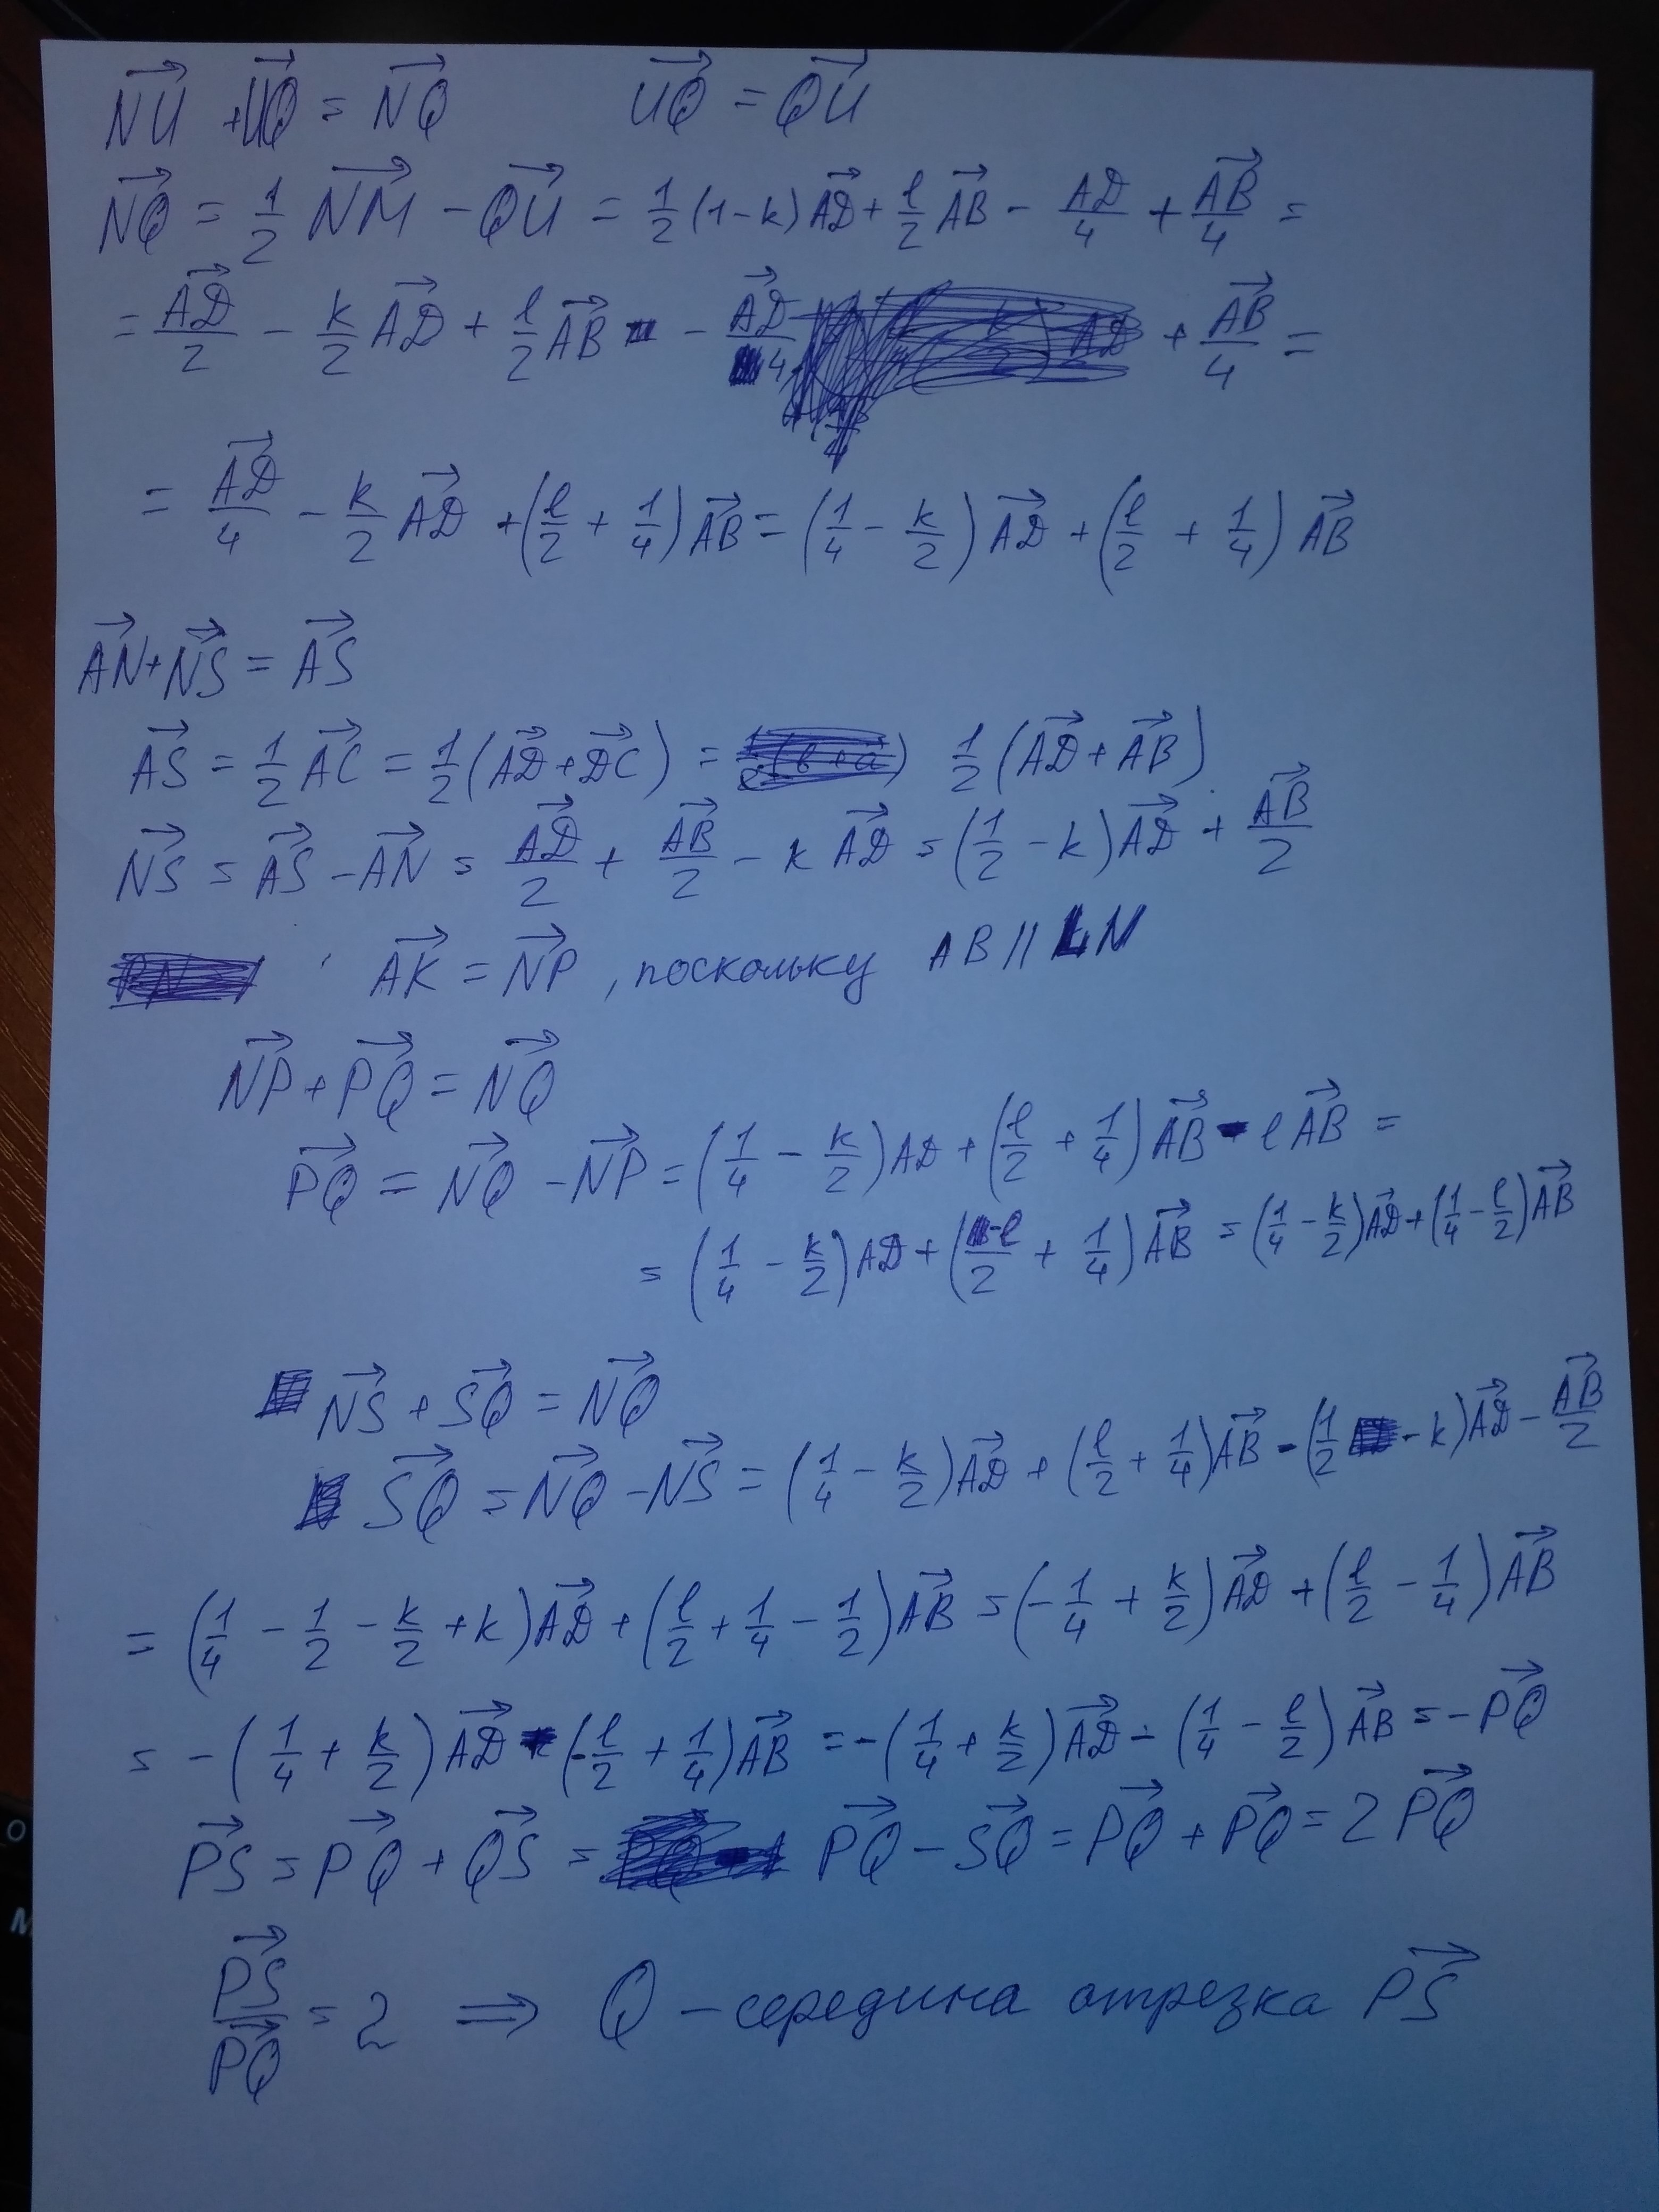 NU⃗ + UQ⃗ = NQ⃗ UQ⃗ = QU⃗
NQ⃗ = 1/2 NM⃗ - QU⃗ = 1/2 (1-k) AD⃗ + l/2 AB⃗ - AD⃗/4 + AB⃗/4 =
= AD⃗/2 - k/2 AD⃗ + l/2 AB⃗ - AD⃗/4 + AB⃗/4 =
= AD⃗/4 - k/2 AD⃗ + (l/2 + 1/4) AB⃗ = (1/4 - k/2) AD⃗ + (l/2 + 1/4) AB⃗
AN⃗ + NS⃗ = AS⃗
AS⃗ = 1/2 AC⃗ = 1/2 (AD⃗ + DC⃗) = 1/2 (AD⃗ + AB⃗)
NS⃗ = AS⃗ - AN⃗ = AD⃗/2 + AB⃗/2 - k AD⃗ = (1/2 - k) AD⃗ + AB⃗/2
AK⃗ = NP⃗, поскольку AB || LN
NP⃗ + PQ⃗ = NQ⃗
PQ⃗ = NQ⃗ - NP⃗ = (1/4 - k/2) AD + (l/2 + 1/4) AB⃗ - l AB⃗ =
= (1/4 - k/2) AD + (-l/2 + 1/4) AB⃗ = (1/4 - k/2) AD⃗ + (1/4 - l/2) AB⃗
NS⃗ + SQ⃗ = NQ⃗
SQ⃗ = NQ⃗ - NS⃗ = (1/4 - k/2) AD⃗ + (l/2 + 1/4) AB⃗ - (1/2 - k) AD⃗ - AB⃗/2
= (1/4 - 1/2 - k/2 + k) AD⃗ + (l/2 + 1/4 - 1/2) AB⃗ = (-1/4 + k/2) AD⃗ + (l/2 - 1/4) AB⃗
= -(1/4 + k/2) AD⃗ - (-l/2 + 1/4) AB⃗ = -(1/4 + k/2) AD⃗ - (1/4 - l/2) AB⃗ = -PQ⃗
PS⃗ = PQ⃗ + QS⃗ = PQ⃗ - SQ⃗ = PQ⃗ + PQ⃗ = 2 PQ⃗
PS⃗/PQ⃗ = 2 ⇒ Q - середина отрезка PS⃗